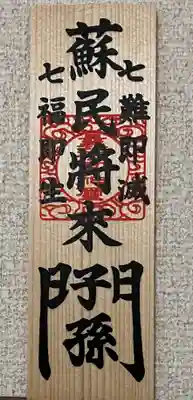 七難即滅
蘇民將来子孫門
七福即生